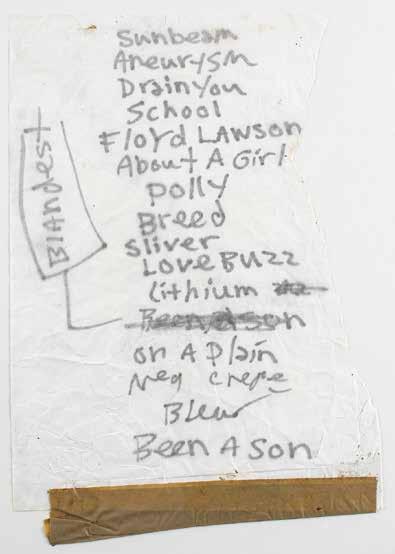 Sunbeam
Aneurysm
Drain You
School
Floyd Lawson
About A Girl
Polly
Breed
Sliver
Love Buzz
Lithium
Blandest
Been A Son
on A Plain
Neg creepe
Blew
Been A Son